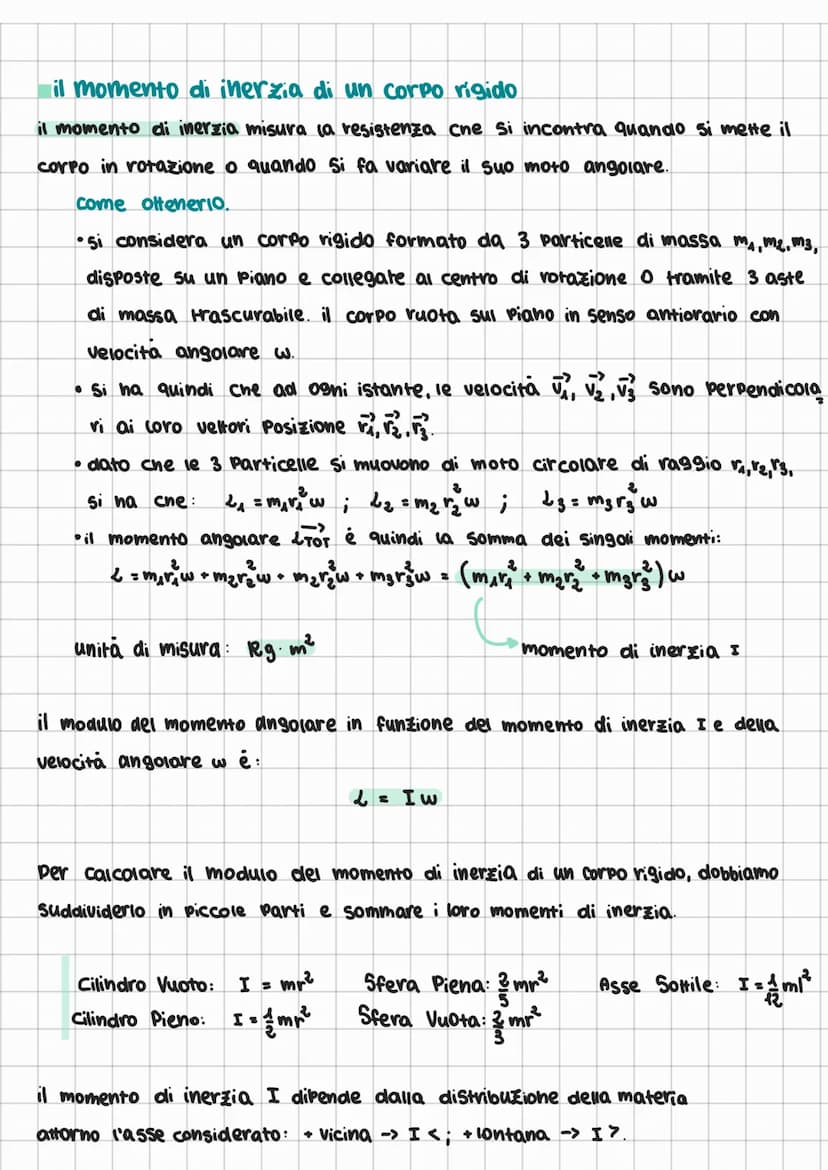 il momento di inerzia di un corpo rigido
il momento di inerzia misura la resistenza che si incontra quando si mette il
corpo in rotazione o quando si fa variare il suo moto angolare.
come ottenerlo.
• si considera un corpo rigido formato da 3 particelle di massa m₁, m₂, m₃,
disposte su un piano e collegate al centro di rotazione O tramite 3 aste
di massa trascurabile. il corpo ruota sul piano in senso antiorario con
velocità angolare ω.
• si ha quindi che ad ogni istante, le velocità v₁⃗, v₂⃗, v₃⃗ sono perpendicola
ri ai loro vettori posizione r₁⃗, r₂⃗, r₃⃗.
• dato che le 3 particelle si muovono di moto circolare di raggio r₁, r₂, r₃,
si ha che: L₁ = m₁r₁²ω ; L₂ = m₂r₂²ω ; L₃ = m₃r₃²ω
• il momento angolare L⃗TOT é quindi la somma dei singoli momenti:
L = m₁r₁²ω + m₂r₂²ω + m₂r₂²ω + m₃r₃²ω = (m₁r₁² + m₂r₂² + m₃r₃²)ω
unità di misura: Kg · m² momento di inerzia I
il modulo del momento angolare in funzione del momento di inerzia I e della
velocità angolare ω é:
L = Iω
Per calcolare il modulo del momento di inerzia di un corpo rigido, dobbiamo
suddividerlo in piccole parti e sommare i loro momenti di inerzia.
Cilindro Vuoto: I = mr² Sfera Piena: 2/5 mr² Asse Sottile: I = 1/12 ml²
Cilindro Pieno: I = 1/2 mr² Sfera Vuota: 2/3 mr²
il momento di inerzia I dipende dalla distribuzione della materia
attorno l'asse considerato: + vicina -> I <; + lontana -> I >.